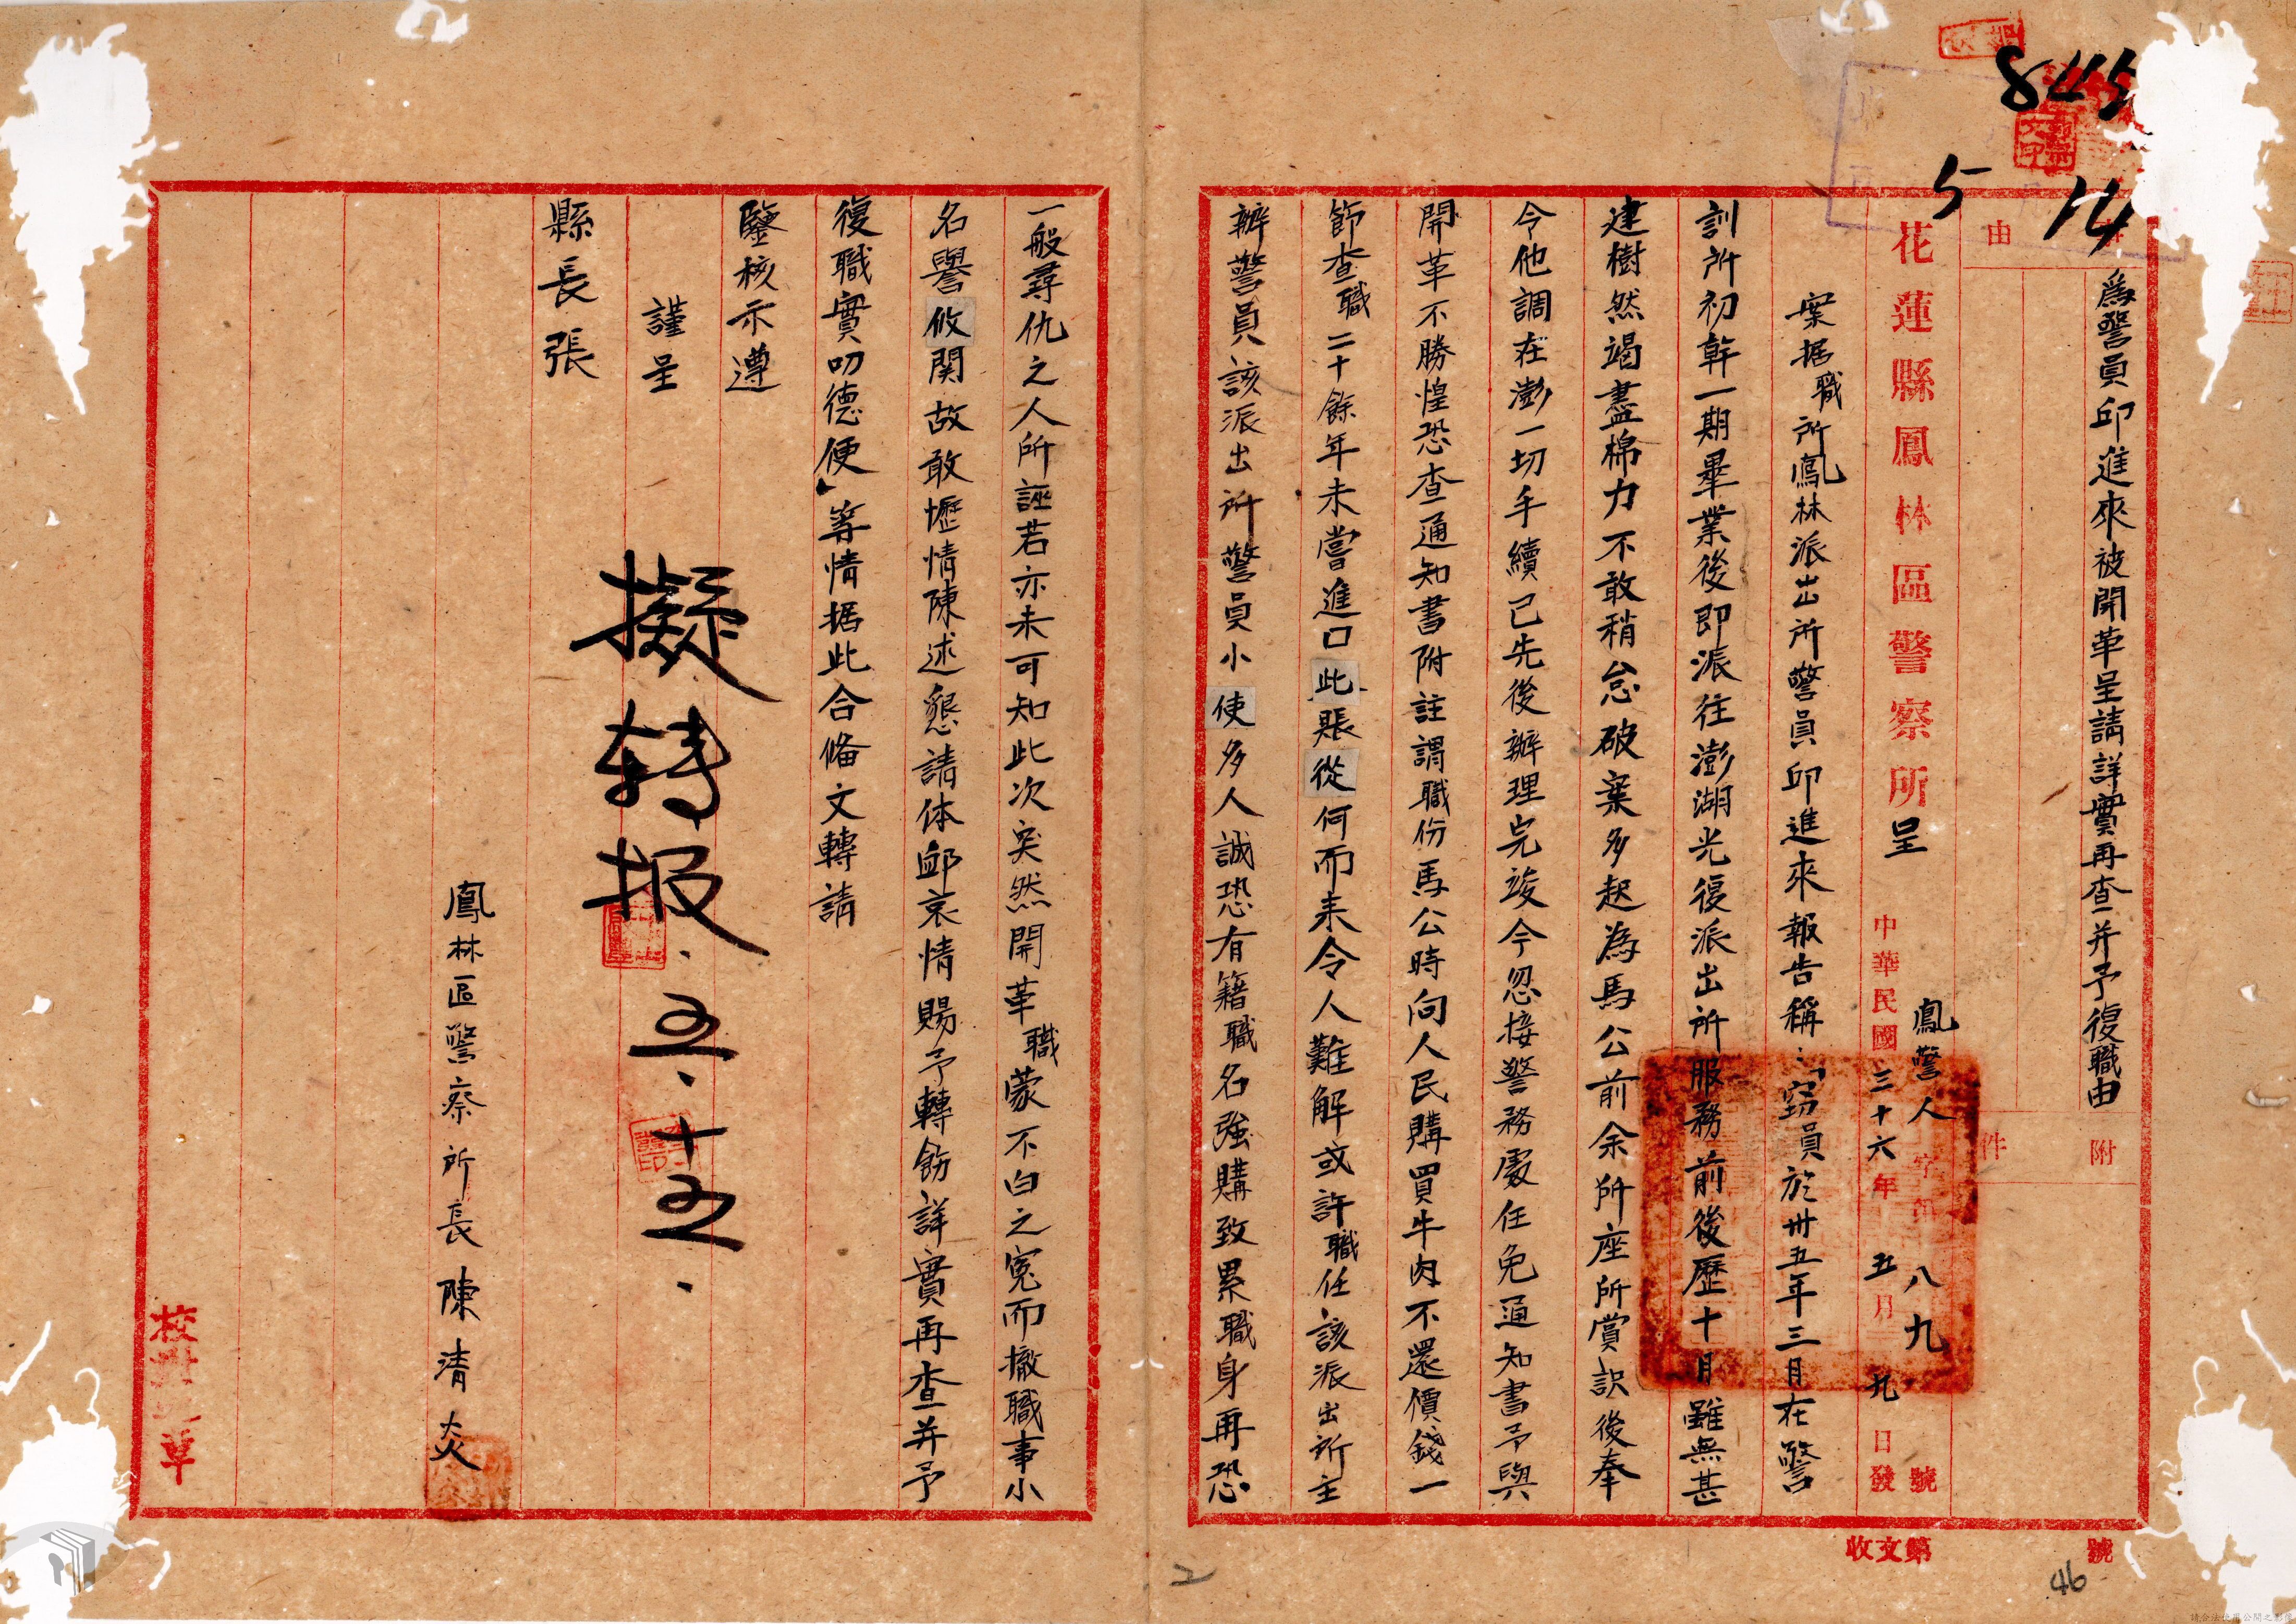 845
5 14
由
為警員邱進來被開革呈請詳實再查并予復職由
附
件
花蓮縣鳳林區警察所呈
鳳警人字第八九號
中華民國三十六年五月九日發
案据職所鳳林派出所警員邱進來報告稱：「窃員於卅五年三月在警
訓所初幹一期畢業後即派往澎湖光復派出所服務前後歷十月雖無甚
建樹然竭盡棉力不敢稍怠破案多起為馬公前余所座所賞識後奉
令他調在澎一切手續已先後辦理完竣今忽接警務處任免通知書予與
開革不勝惶恐查通知書附註謂職份馬公時向人民購買牛肉不還價錢一
節查職二十餘年未嘗進口此賬從何而来令人難解或許職任該派出所主
辦警員該派出所警員小使多人誠恐有籍職名強購致累職身再恐
一般尋仇之人所誣若亦未可知此次突然開革職蒙不白之寃而撤職事小
名譽攸関故敢壢情陳述懇請体邮哀情賜予轉飭詳實再查并予
復職實叨德便」等情据此合備文轉請
鑒核示遵
謹呈
縣長張
擬轉报 五、十五、
鳳林區警察所長陳清炎
收文第 號
46
2